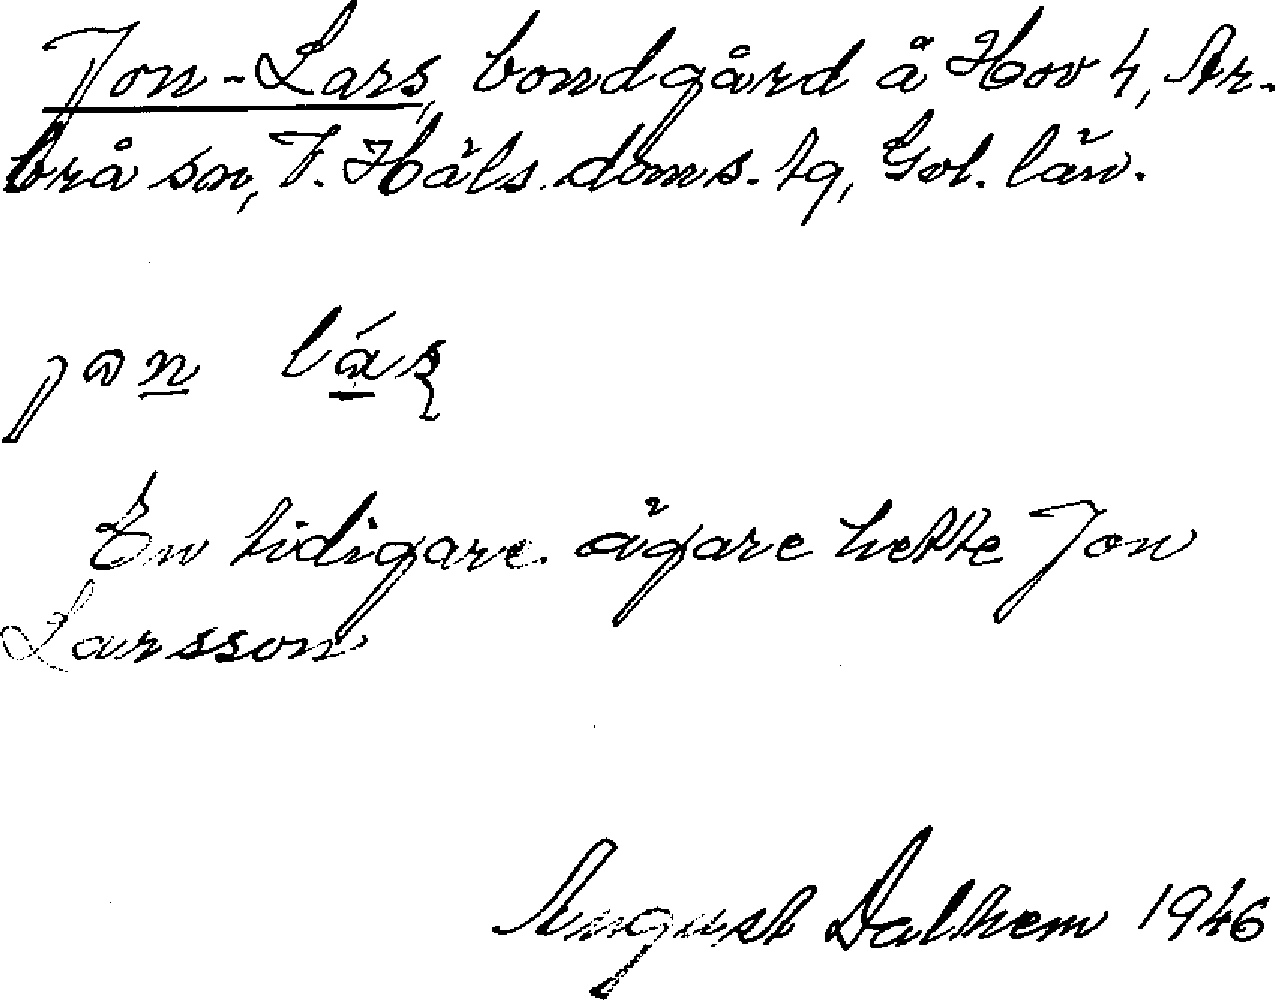 Jon-Lars, bondgård å Hov 4, Ar-
brå sn, V. Häls. doms. tg, Gvl. län.
En tidigare ägare hette Jon
Larsson
August Dalhem 1946